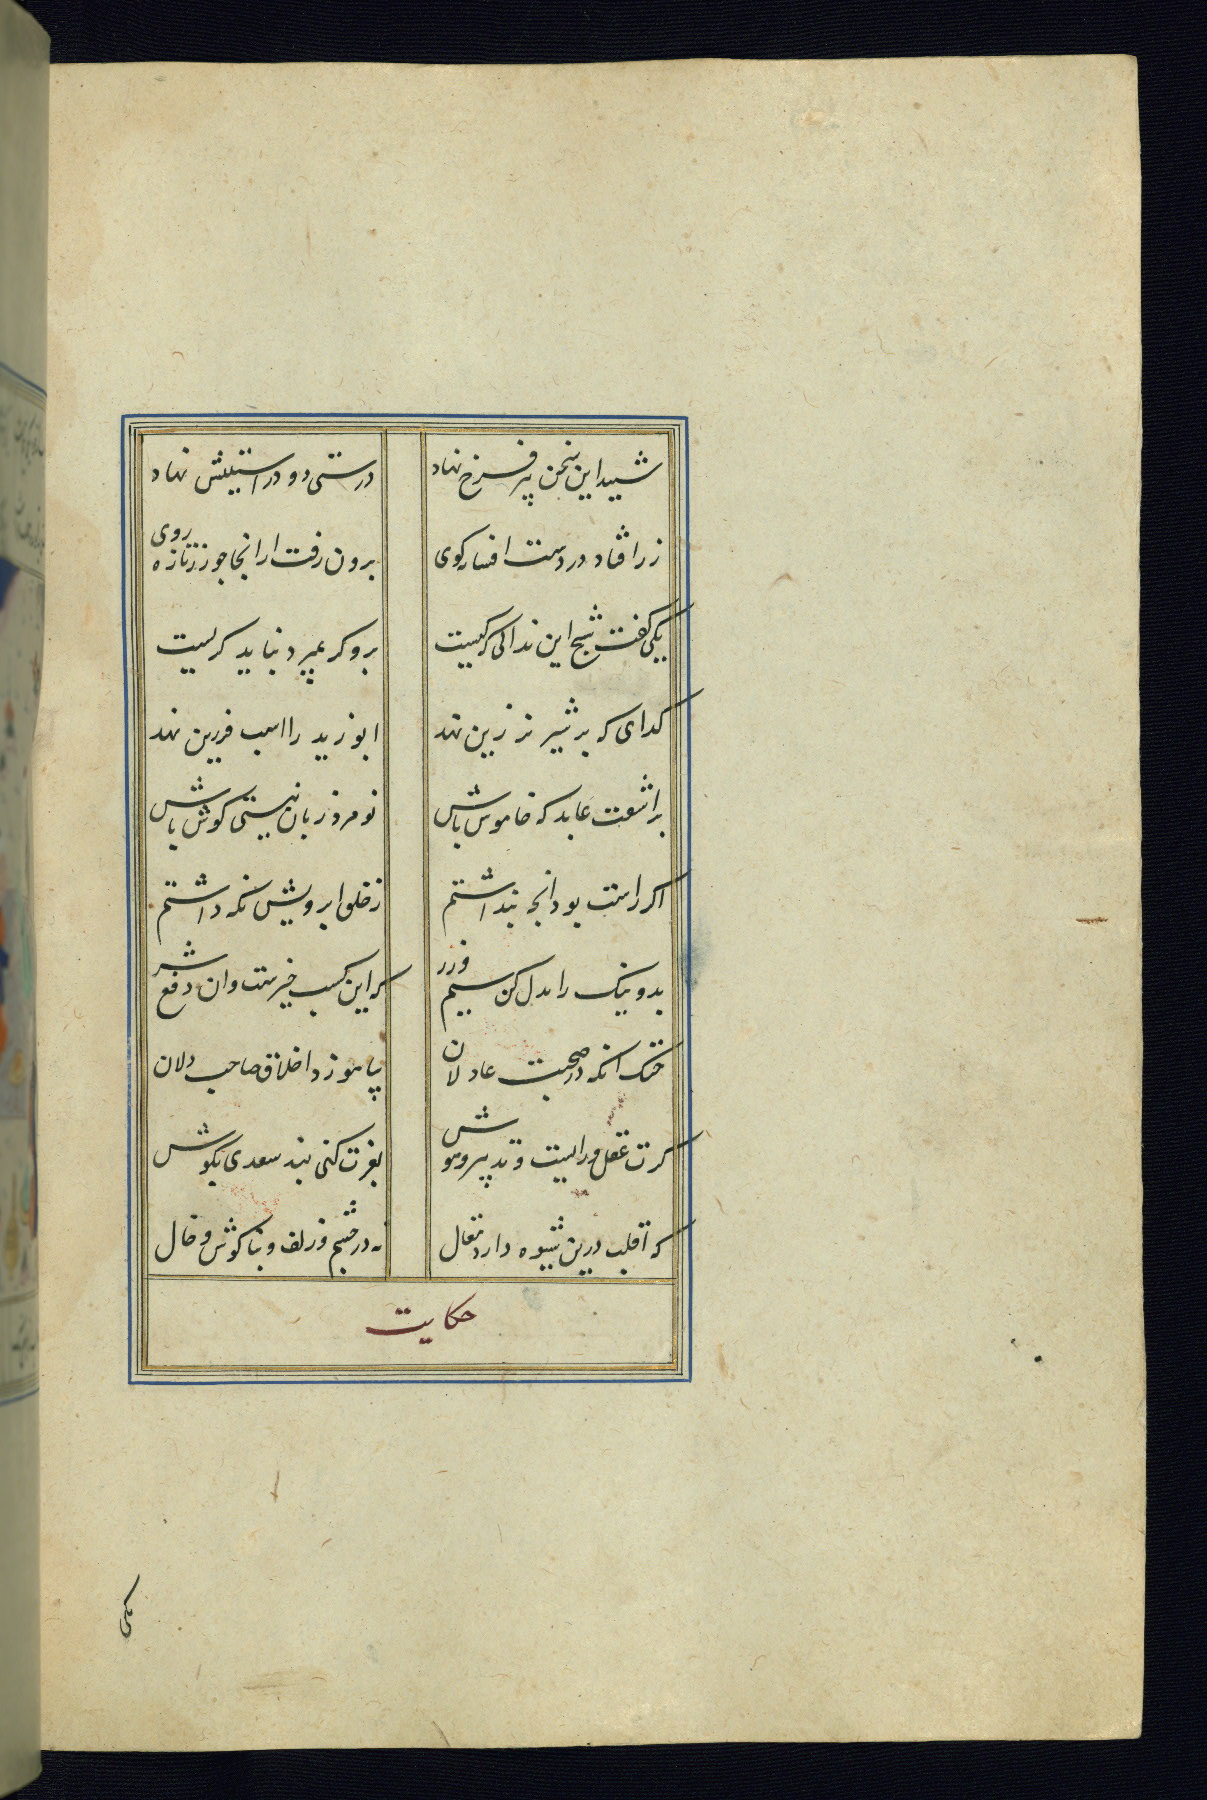 شنید این سخن پیر فرخ نهاد درستی دو در آستینش نهاد
زر افتاد در دست افسانه کوی برون رفت ازانجا جو زر تازه روی
یکی کفت شیخ این ندانی که کیست برو کر بمیرد نباید کریست
کدای که بر شیر نر زین نهد ابو زید را اسب فرزین نهد
بر اشفت عابد که خاموش باش تو مرد زبان نیستی کوش باش
اکر راست بود انجه بنداشتم ز خلق ابرویش نکه داشتم
بد و نیک را بدل کن سیم و زر که این کسب خیرست وان دفع شر
خنک انکه در صحبت عاقلان بیاموزد اخلاق صاحب دلان
کرت عقل و رایست و تدبیر و هوش بعزت کنی پند سعدی بکوش
که اغلب درین شیوه دارد مقال نه در چشم و زلف و بناکوش و خال
حکایت
یکی